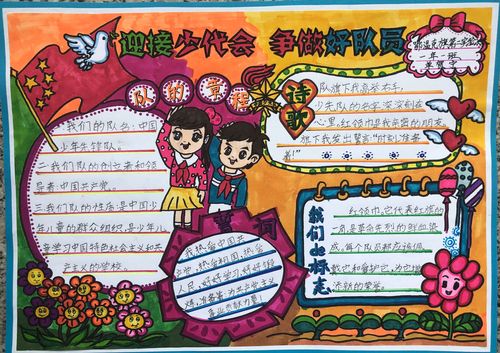 迎接少代会 争做好队员
鄂温克族第一实验小
一年一班
队的章程
一我们的队名:中国
少年先锋队。
二我们队的创立者和领
导者:中国共产党。
三我们队的性质:是中国少
年儿童的群众组织,是少年儿
童学习中国特色社会主义和共
产主义的学校。
诗歌
队旗下我高举右手,
少先队的名字深深刻在
心里,红领巾是我亲密的朋友。
旗下我发出誓言"时刻准备
着!"
誓词
我热爱中国共
产党,热爱祖国,热爱
人民,好好学习,好好锻
炼,准备着:为共产主义
事业贡献力量!
我们de标志
红领巾,它代表红旗的
一角,是革命先烈的鲜血染
成,每个队员都应该佩
戴它和爱护它,为它增
添新的荣誉。